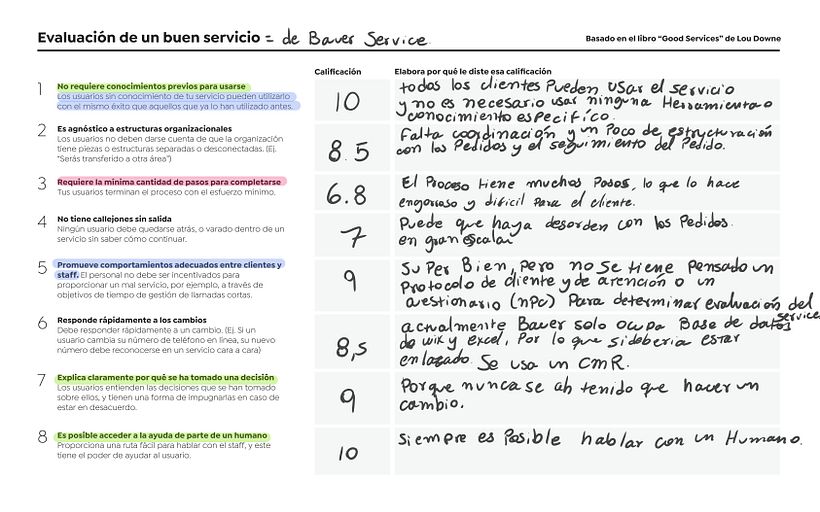 Evaluación de un buen servicio = de Baver Service.
Basado en el libro “Good Services” de Lou Downe
Calificación
Elabora por qué le diste esa calificación
1
No requiere conocimientos previos para usarse
Los usuarios sin conocimiento de tu servicio pueden utilizarlo
con el mismo éxito que aquellos que ya lo han utilizado antes.
10
todos los clientes Pueden usar el servicio
y no es necesario usar ninguna Herramienta o
conocimiento específico.
2
Es agnóstico a estructuras organizacionales
Los usuarios no deben darse cuenta de que la organización
tiene piezas o estructuras separadas o desconectadas. (Ej.
“Serás transferido a otra área”)
8.5
Falta coordinación y un Poco de estructuración
con los Pedidos y el seguimiento del Pedido.
3
Requiere la mínima cantidad de pasos para completarse
Tus usuarios terminan el proceso con el esfuerzo mínimo.
6.8
El Proceso tiene muchos Pasos, lo que lo hace
engorroso y dificil Para el cliente.
4
No tiene callejones sin salida
Ningún usuario debe quedarse atrás, o varado dentro de un
servicio sin saber cómo continuar.
7
Puede que haya desorden con los Pedidos.
en gran escala
5
Promueve comportamientos adecuados entre clientes y
staff. El personal no debe ser incentivados para
proporcionar un mal servicio, por ejemplo, a través de
objetivos de tiempo de gestión de llamadas cortas.
9
Super Bien, Pero no se tiene Pensado un
Protocolo de cliente y de atención o un
cuestionario (npc) Para determinar evaluación del
service.
6
Responde rápidamente a los cambios
Debe responder rápidamente a un cambio. (Ej. Si un
usuario cambia su número de teléfono en línea, su nuevo
número debe reconocerse en un servicio cara a cara)
8,5
actualmente Baver solo ocupa Base de datos
de wix y excel, Por lo que si deberia estar
enlazado. Se usa un CMR.
7
Explica claramente por qué se ha tomado una decisión
Los usuarios entienden las decisiones que se han tomado
sobre ellos, y tienen una forma de impugnarlas en caso de
estar en desacuerdo.
9
Porque nunca se ah tenido que hacer un
cambio.
8
Es posible acceder a la ayuda de parte de un humano
Proporciona una ruta fácil para hablar con el staff, y este
tiene el poder de ayudar al usuario.
10
siempre es Posible hablar con un Humano.